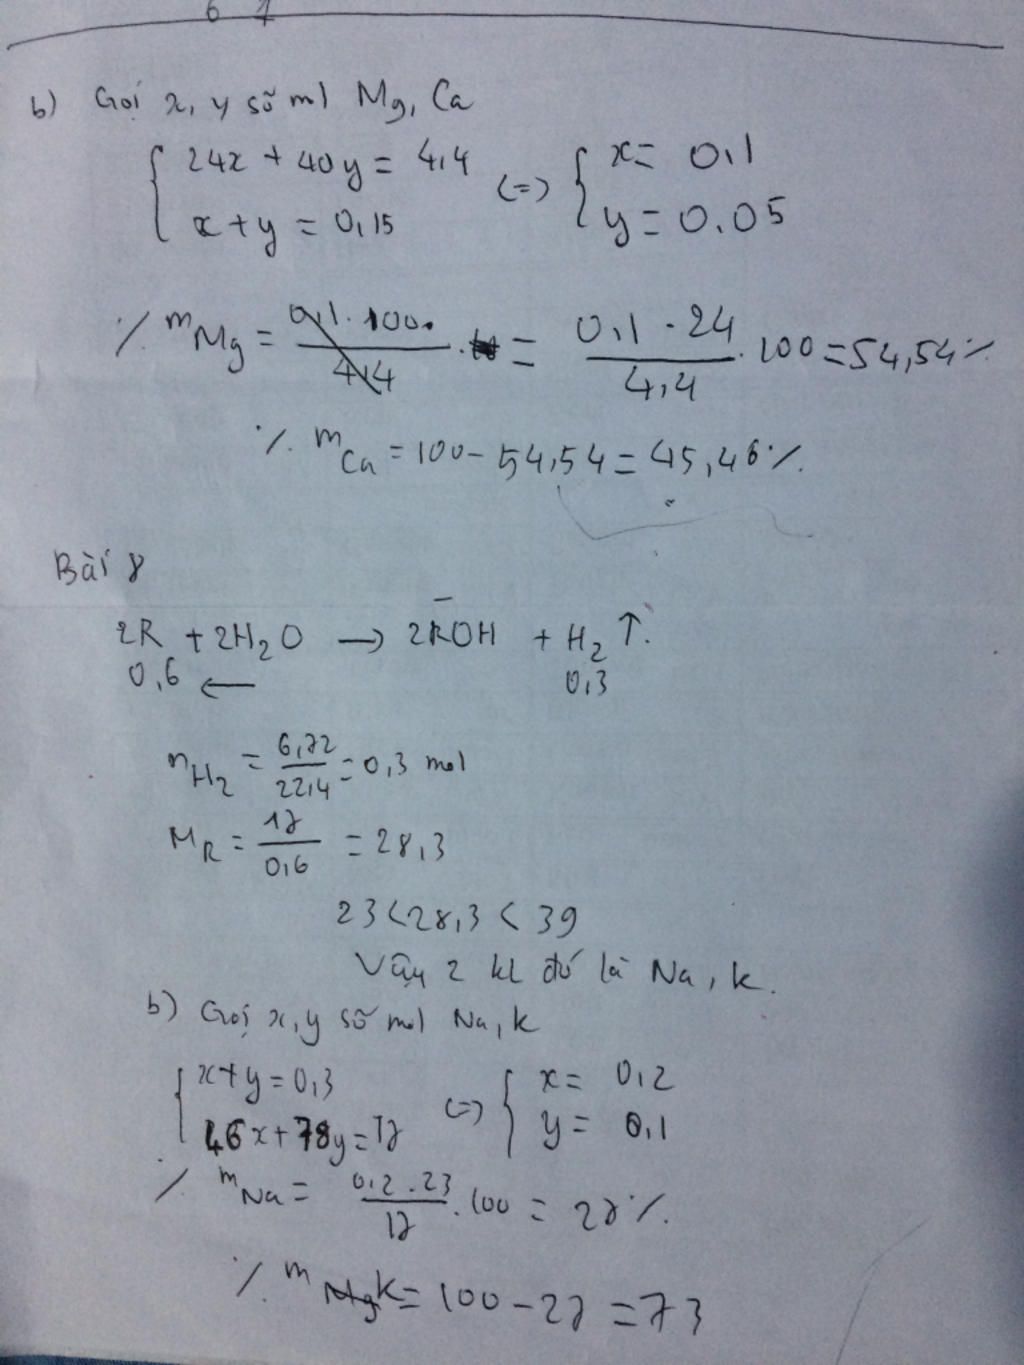 6 7
b) Gọi x, y số ml Mg, Ca
{ 24x + 40y = 4,4 (=) { x = 0,1
x + y = 0,15 y = 0.05
% mMg = 0,1 . 100 / 4,4 . = 0,1 . 24 / 4,4 . 100 = 54,54 %
% mCa = 100 - 54,54 = 45,46 %.
Bài 8
2R + 2H2O → 2R̄OH + H2 ↑.
0,6 ← 0,3
nH2 = 6,72 / 22,4 = 0,3 mol
MR = 17 / 0,6 = 28,3
23 < 28,3 < 39
Vậy 2 kl đó là Na, K.
b) Gọi x, y số mol Na, K
{ x + y = 0,3 (=) { x = 0,2
46x + 78y = 17 y = 0,1
% mNa = 0,2 . 23 / 17 . 100 = 27 %.
% m Mg K = 100 - 27 = 73